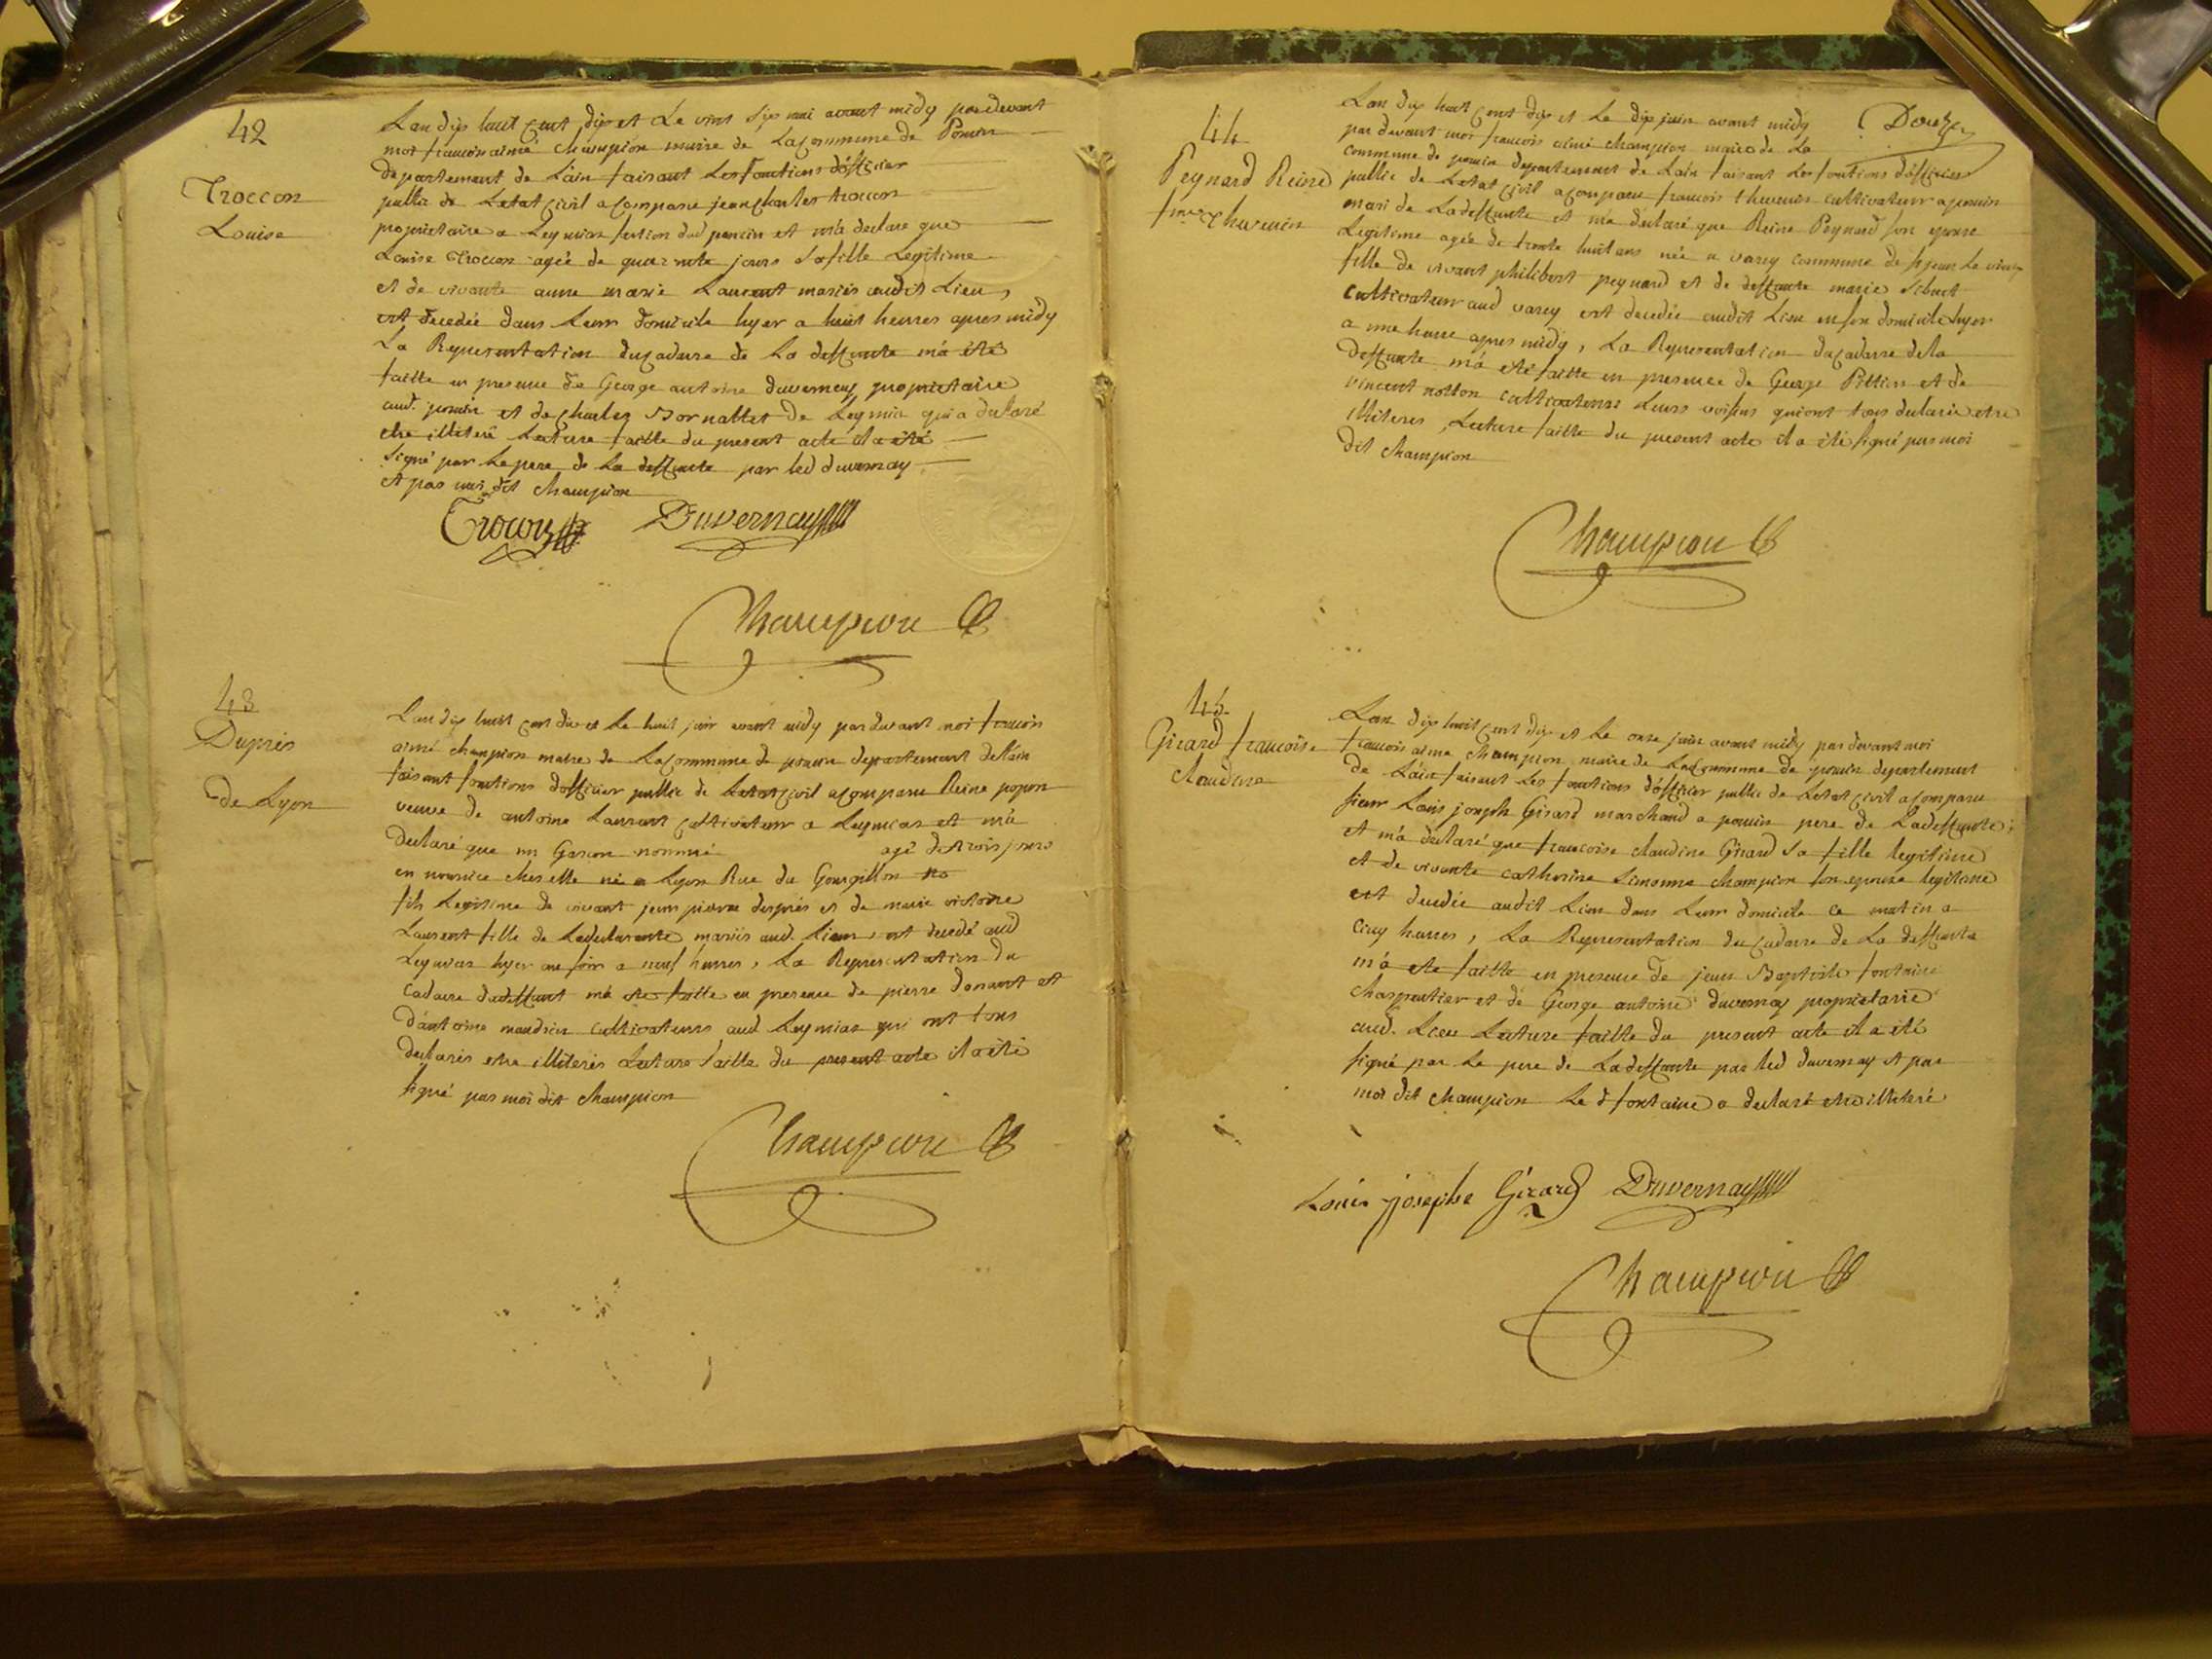 42
Troccon
Louise
Lan dix huit cent dix et Le vint six mai avant midy pardevant
moi francois aimé champion maire de La commune de Poncin
departement de L'ain faisant Les fonctions d'officier
public de Letat civil a comparu jean charles troccon
proprietaire a Leymiat section dud poncin et m'a declare que
Louise Troccon agée de quarante jours Sa fille Legitime
et de vivante anne marie Laurent mariés audit Lieu,
est decedée dans Leur domicile hyer a huit heures apres midy
La Representation du cadavre de La deffunte m'a été
faitte en presence de George antoine duvernay proprietaire
aud. poncin et de charles Bornattet de Leymia qui a declaré
etre illiteré Lecture faitte du present acte il a été
signé par Le pere de La deffunte par led duvernay
et par moi dit champion
Trocon Duvernay
Champion
43
Dupres
de Lyon
Lan dix huit cent dix et Le huit juin avant midy par devant moi francois
aimé champion maire de La commune de poncin departement de Lain
faisant fonctions d'officier public de Letat civil a comparu Reine popon
veuve de antoine Laurent cultivateur a Leymiat et m'a
declaré que un Garcon nommé agé de trois jours
en nourrice chez elle né a Lyon Rue du Gourgillon no
fils Legitime de vivant jean pierre després et de marie victoire
Laurent fille de La declarante mariés aud. Lieu, est decedé aud
Leymiat hyer au soir a neuf heures, La Representation du
cadavre du deffunt m'a ete faitte en presence de pierre donant et
d'antoine maudieu cultivateurs aud Leymiat qui ont tous
declarés etre illiterés Lecture faitte du present acte il a été
signé par moi dit champion
Champion
44
Peynard Reine
fme Thevenin
Douze
Lan dix huit cent dix et Le dix juin avant midy
par devant moi francois aimé champion maire de La
commune de poncin departement de Lain faisant Les fontions d'officier
public de Letat civil a comparu francois thevenin cultivateur a poncin
mari de La deffunte et m'a declaré que Reine Peynard son epouse
Legitime agée de trente huit ans née a varey commune de st jean Le vieux
fille de vivant philibert peynard et de deffunte marie
cultivateur aud varey est decedée audit Lieu en son domicile hyer
a une heure apres midy, La Representation du cadavre de la
deffunte m'a été faitte en presence de George Pittion et de
vincent notton cultivateurs Leurs voisins qui ont tous declarés etre
illiterés, Lecture faitte du present acte il a été signé par moi
dit champion
Champion
45
Girard francoise
claudine
Lan dix huit cent dix et Le onze juin avant midy par devant moi
francois aimé champion maire de La commune de poncin departement
de L'ain faisant Les fonctions d'officier public de Letat civil a comparu
sieur Louis joseph Girard marchand a poncin pere de La deffunte;
et m'a declaré que francoise claudine Girard Sa fille legitime
et de vivante catherine Simonne champion son epouse legitime
est decedée audit Lieu dans Leur domicile ce matin a
cinq heures, La Representation du cadavre de La deffunte
m'a ete faitte en presence de jean Baptiste fontaine
charpentier et de George antoine duvernay proprietaire
aud. Lieu Lecture faitte du present acte il a été
signé par Le pere de La deffunte par led duvernay et par
moi dit champion Le d fontaine a declaré etre illiteré
Louis joseph Girard Duvernay
Champion